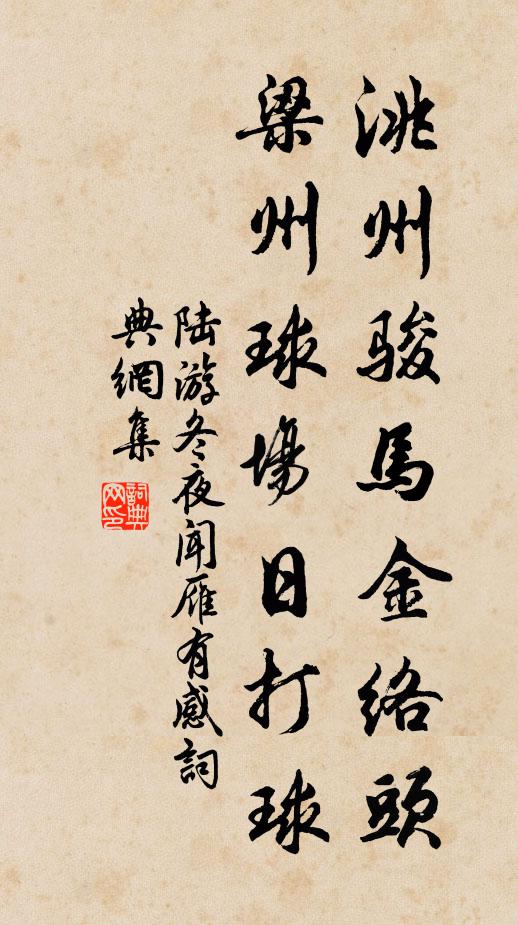 洮州駿馬金絡頭
梁州球場日打球
陆游冬夜闻雁有感詞
典網集
詞典
网印